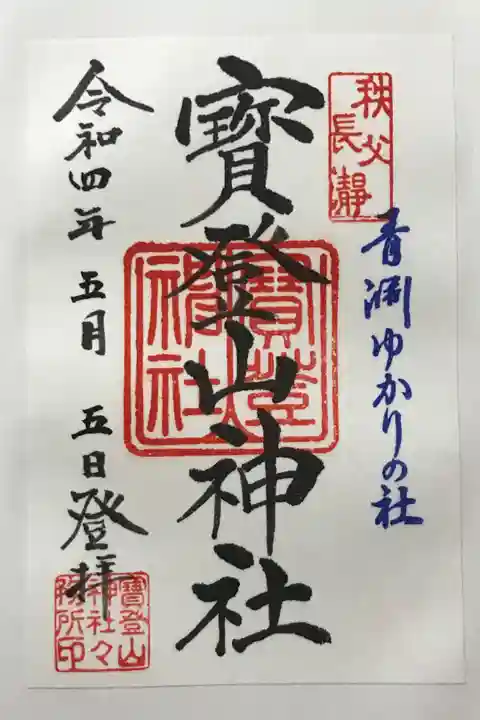 秩父
長瀞
青渊ゆかりの社
寳登山神社
寳登
山
神社
令和四年 五月 五日登拝
寳登山
神社々
務所印